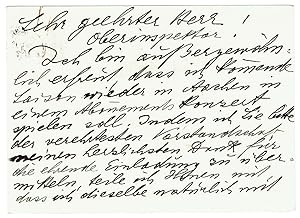 Sehr geehrter Herr
Oberinspektor!
Ich bin außergewöhn-
lich erfreut, dass ich kommende
Saison wieder in Aachen in
einem Abonnements Konzert
spielen soll. Indem ich Sie bitte
der verehrlichen Vorstandschaft
meinen herzlichsten Dank für
die ehrende Einladung zu über-
mitteln, teile ich Ihnen mit,
dass ich dieselbe natürlich mit